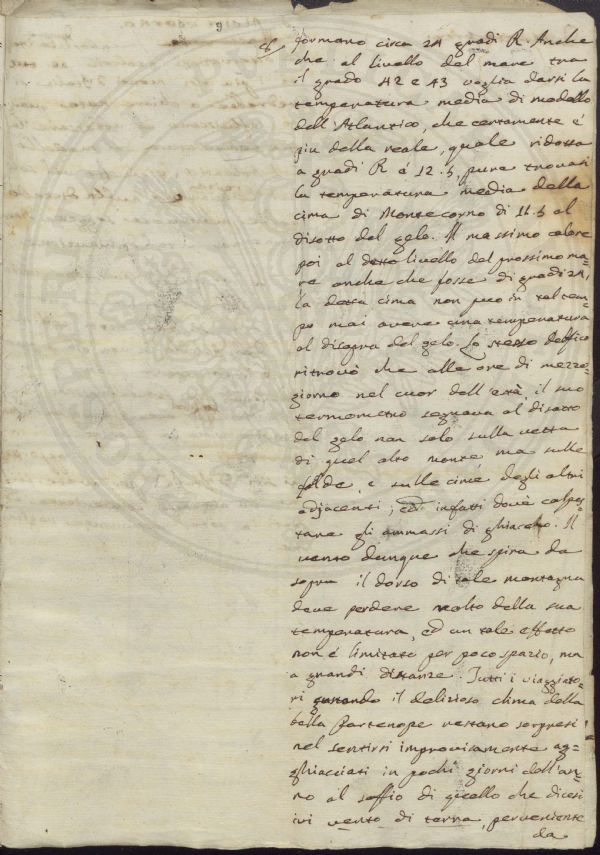 formano circa 24 gradi R. Anche
che al livello del mare tra
il grado 42 e 43 voglia darsi la
temperatura media di modello
dell'Atlantico, che certamente é
piu della reale, quale ridotta
a gradi R é 12.5, pure trovasi
la temperatura media della
cima di Montecorno di 11.5 al
disotto del gelo. Il massimo calore
poi al detto livello del prossimo ma=
re anche che fosse di gradi 24,
la detta cima non puo in tal tem=
po mai avere una temperatura
al disopra del gelo. Lo stesso
ritrovò che alle ore di mezzo=
giorno nel cuor dell'està, il suo
termometro segnava al disotto
del gelo non solo sulla vetta
di quel alto monte, ma sulle
falde, e sulle cime degli altri
adjacenti; ed infatti dovè calpes=
tare gli ammassi di ghiaccio. Il
vento dunque che spira da
sopra il dorso di tale montagna
deve perdere molto della sua
temperatura, ed un tale effetto
non é limitato per poco spazio, ma
a grandi distanze. Tutti i viaggiato=
ri gustando il delizioso clima della
bella Partenope restano sorpresi
nel sentirsi improvisamente ag=
ghiacciati in pochi giorni dell'an=
no al soffio di quello che dicesi
ivi vento di terra, perveniente
da